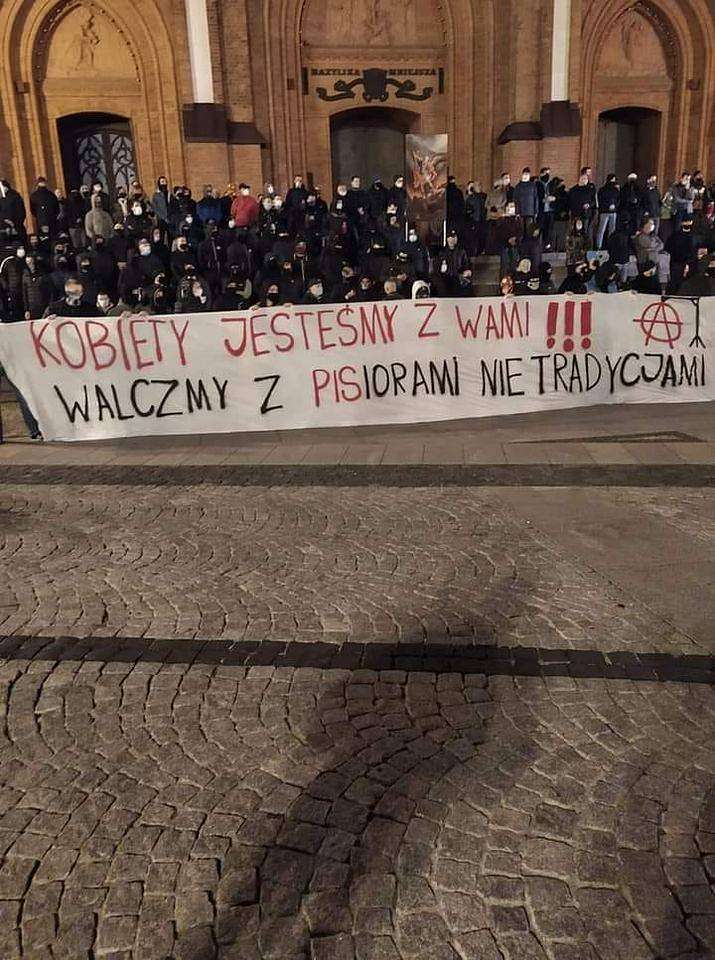 BAZYLIKA MNIEJSZA
KOBIETY JESTEŚMY Z WAMI !!!
WALCZMY Z PISIORAMI NIE TRADYCJAMI